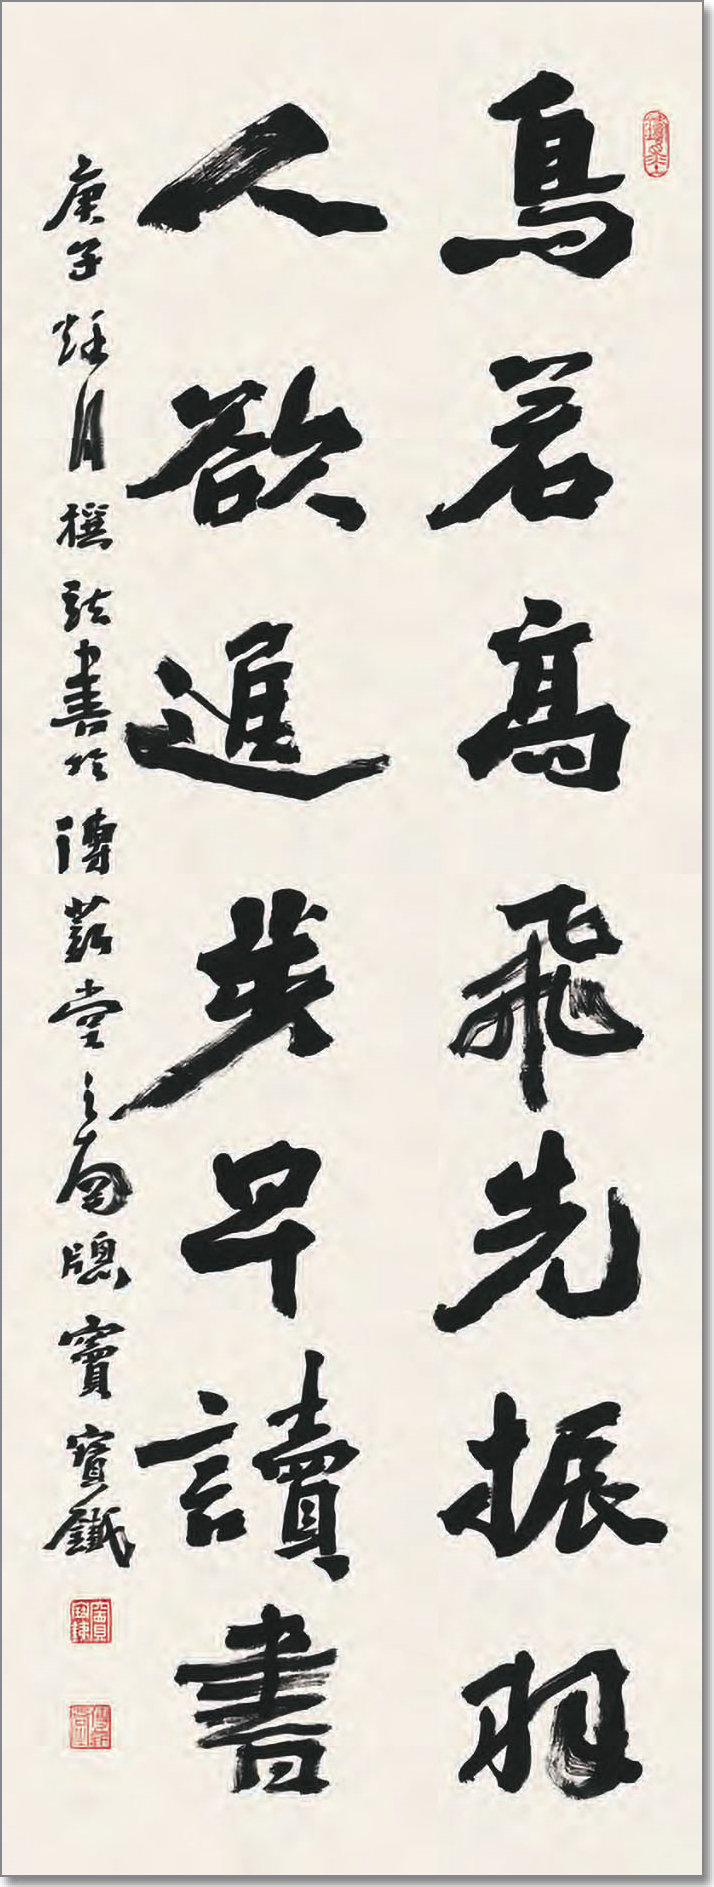 鳥若高飛先振羽
人欲進步早讀書
庚子月撰書於堂之南牕竇寶鐵